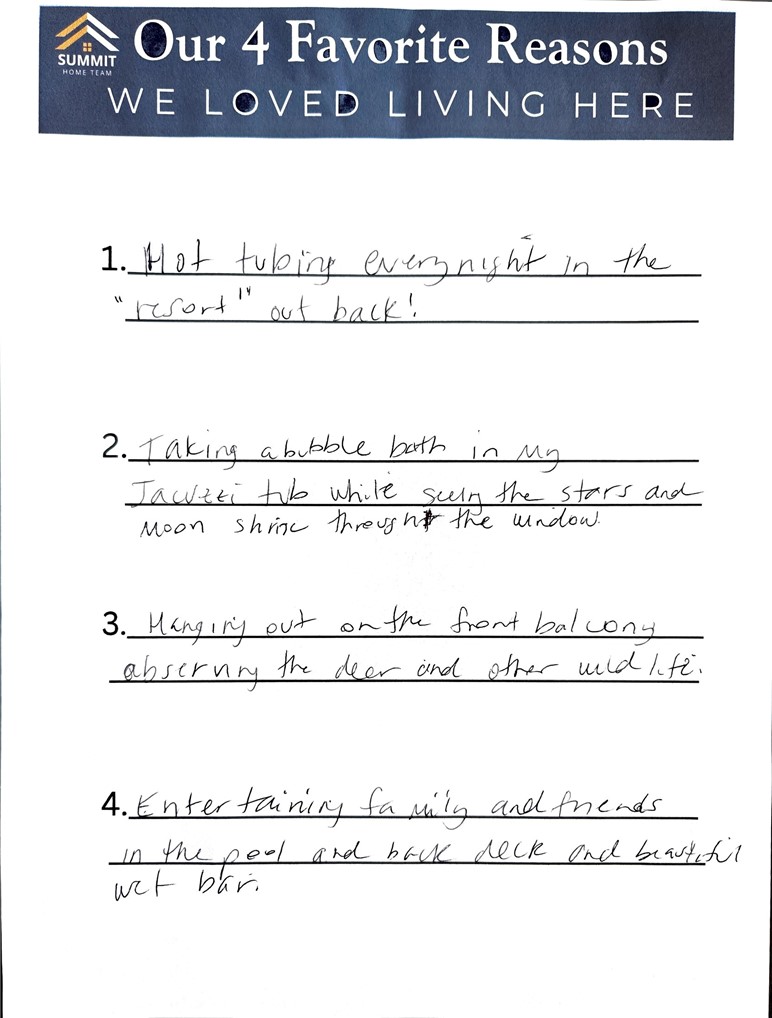 SUMMIT
HOME TEAM
Our 4 Favorite Reasons
WE LOVED LIVING HERE
1. Hot tubing every night in the
"resort" out back!
2. Taking a bubble bath in my
Jacuzzi tub while seeing the stars and
moon shine through the window.
3. Hanging out on the front balcony
abserving the deer and other wild life.
4. Entertaining family and friends
in the pool and back deck and beautiful
wet bar.